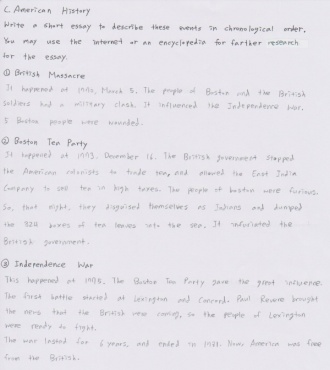 C. American History
Write a short essay to describe these events in chronological order.
You may use the internet or an encyclopedia for further research
for the essay.
① British Massacre
It happened at March 5. The people of Boston and the British
soldiers had a military clash. It influenced the Independence War.
5 Boston people were wounded.
② Boston Tea Party
It happened at December 16. The British government stopped
the American colonists to trade tea, and allowed the East India
Company to sell tea in high taxes. The people of boston were furious.
So, that night, they disguised themselves as Indians and dumped
the boxes of tea leaves into the sea. It infuriated the
British government.
③ Independence War
This happened at The Boston Tea Party gave the great influence.
The first battle started at Lexington and Concord. Paul Revere brought
the news that the British were coming, so the people of Lexington
were ready to fight.
The war lasted for 6 years, and ended in Now America was free
from the British.